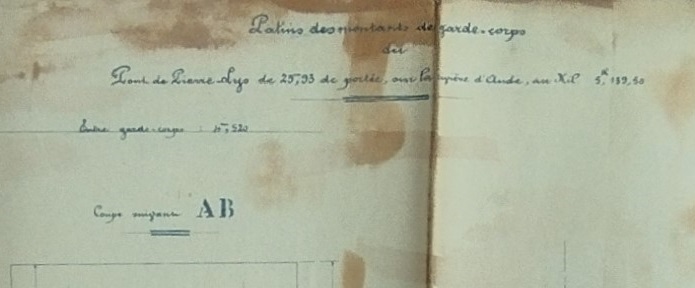 Patins des montants de garde-corps
du
Pont de Pierre-Lys de 25,93 de portée, sur la rivière d'Aude, au K.il 5.K 139,50
Entre garde-corps : 4m,520
Coupe suivant AB